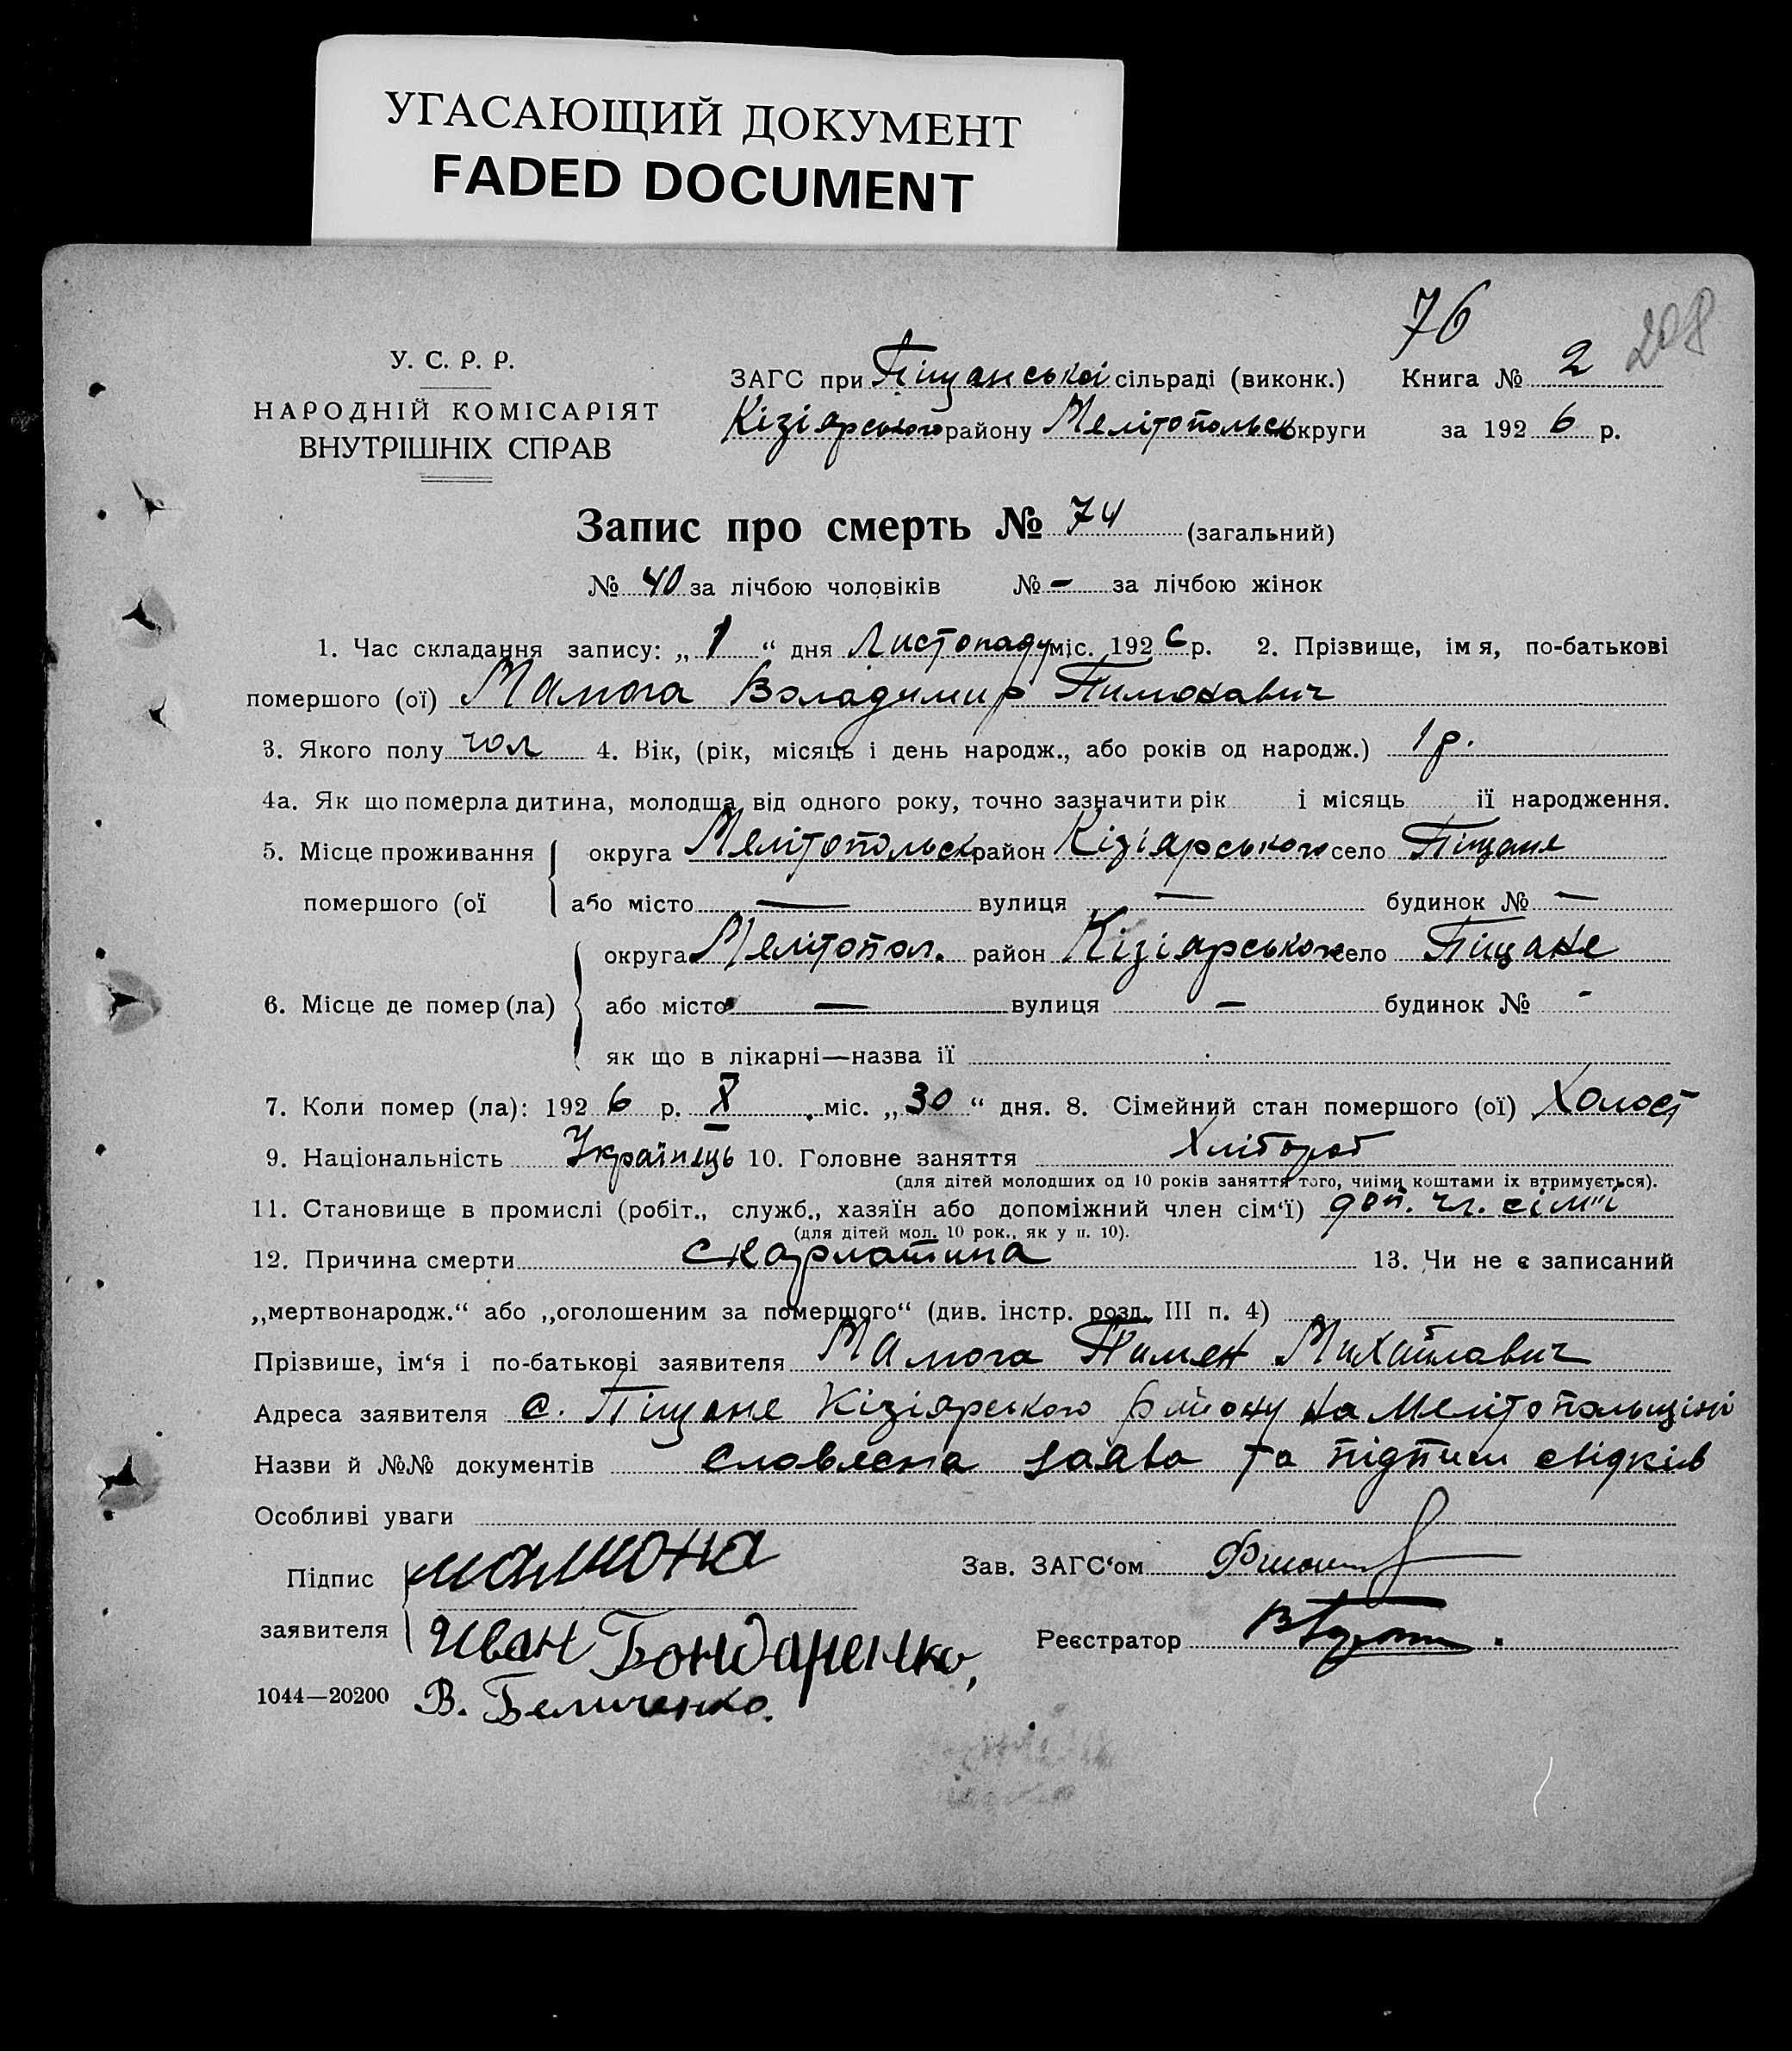 УГАСАЮЩИЙ ДОКУМЕНТ
FADED DOCUMENT
76
208
У. С. Р. Р.
НАРОДНІЙ КОМІСАРІЯТ
ВНУТРІШНІХ СПРАВ
ЗАГС при Піщанській сільраді (виконк.) Книга № 2
Кізіярського району Мелітопольськ округи за 1926 р.
Запис про смерть № 74 (загальний)
№ 40 за лічбою чоловіків № – за лічбою жінок
1. Час складання запису: „ 1 “ дня Листопаду міс. 1926 р. 2. Прізвище, імя, по-батькові
помершого (ої) Мамога Володимир Пимонавич
3. Якого полу чол 4. Вік, (рік, місяць і день народж., або років од народж.) 1 р.
4а. Як що померла дитина, молодша від одного року, точно зазначити рік і місяць її народження.
5. Місце проживання помершого (ої округа Мелітопольськ район Кізіярського село Піщане
або місто — вулиця — будинок № —
6. Місце де помер (ла) округа Мелітопол. район Кізіярського село Піщане
або місто — вулиця — будинок № -
як що в лікарні—назва її
7. Коли помер (ла): 1926 р. X міс. „ 30 “ дня. 8. Сімейний стан помершого (ої) Холост
9. Національність Українець 10. Головне заняття Хлібороб
(для дітей молодших од 10 років заняття того, чиїми коштами їх втримується).
11. Становище в промислі (робіт., служб., хазяїн або допоміжний член сім‘ї) доп. чл. сім"ї
(для дітей мол. 10 рок., як у п. 10).
12. Причина смерти скарлатина 13. Чи не є записаний
„мертвонародж.“ або „оголошеним за помершого“ (див. інстр. розд. III п. 4)
Прізвише, ім‘я і по-батькові заявителя Мамога Пимен Михайлавич
Адреса заявителя с. Піщане Кізіярського району на Мелітопольщіні
Назви й №№ документів словесна заява та підписи свідків
Особливі уваги
Підпис заявителя
Зав. ЗАГС‘ом
Иван Бондаренко,
Реєстратор
1044—20200 В. Беличенко.